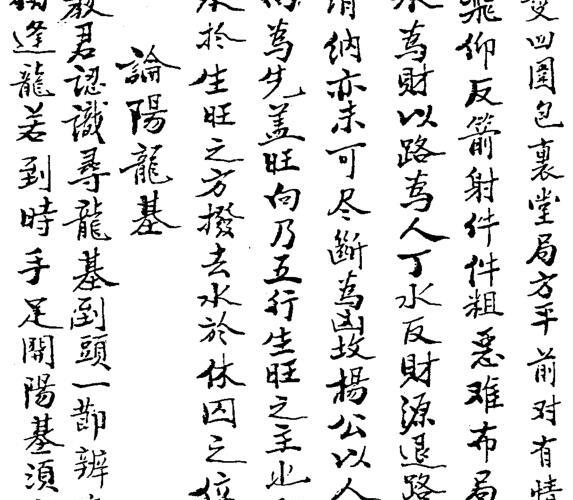 四圍包裹堂局方平前对有情
飛仰反箭射件件粗惡难布局
水為財以路為人丁水反財源退路
納亦未可尽断為凶故楊公以人
為先盖旺向乃五行生旺之主也
於生旺之方撥去水於休囚之位
論陽龍基
教君認識尋龍基到頭一節辨
逢龍若到時手足開陽基須